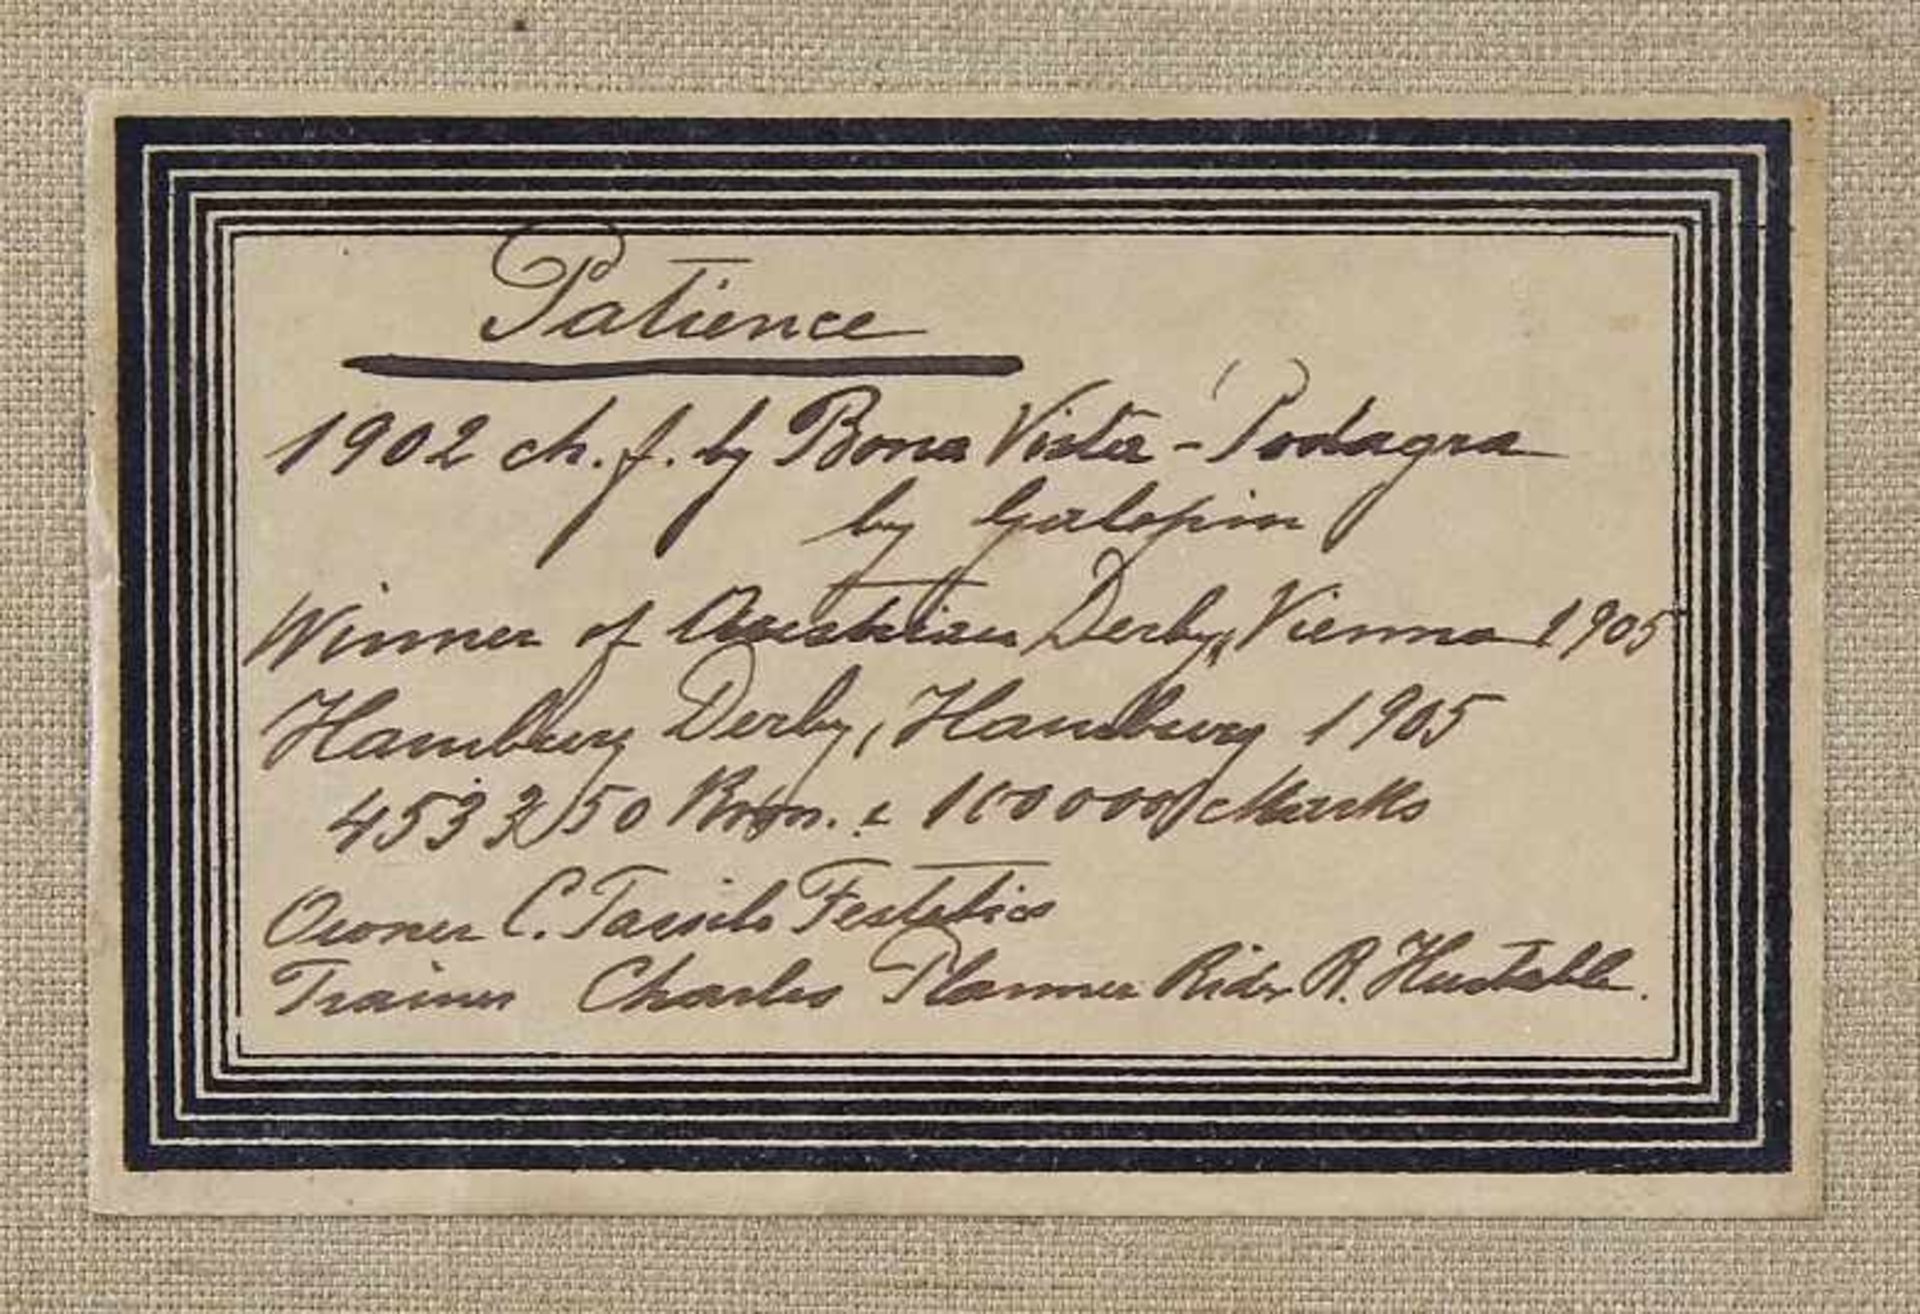 Patience
1902 ch. f. by Bona Vista - Podagra
by Galopin
Winner of Austrian Derby, Vienna 1905
Hamburg Derby, Hamburg 1905
453250 Kron. & 100000 Marks
Owner C. Tassilo Festetics
Trainer Charles Planner Rider R. Huxtable.